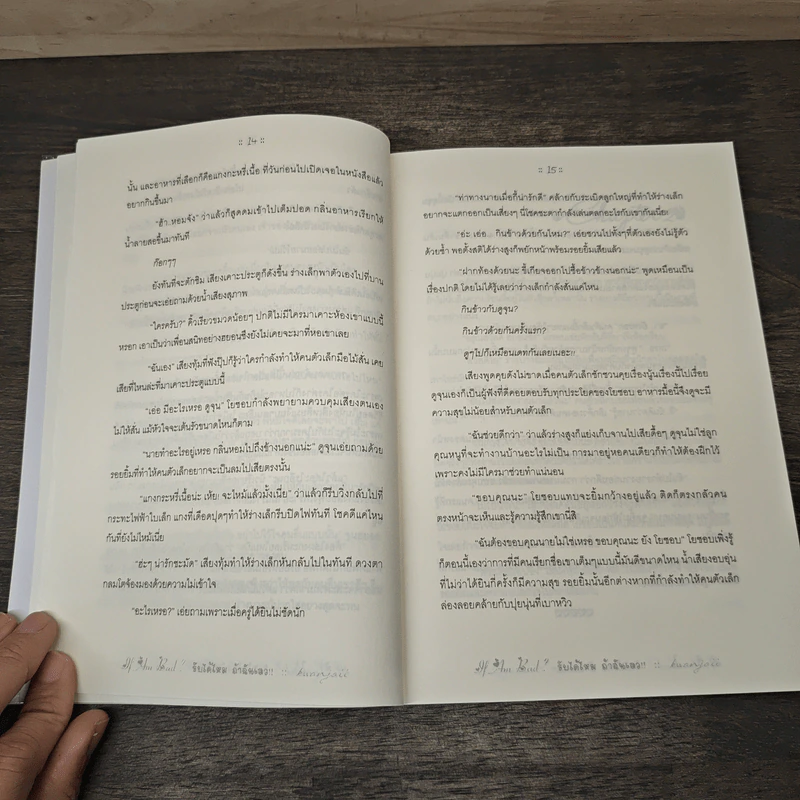 :: 14 ::
นั้น และอาหารที่เลือกก็คือแกงกะหรี่เนื้อ ที่วันก่อนไปเปิดเจอในหนังสือแล้ว
อยากกินขึ้นมา
"ฮ้า..หอมจัง" ว่าแล้วก็สูดดมเข้าไปเต็มปอด กลิ่นอาหารเรียกให้
น้ำลายสอขึ้นมาทันที
ก๊อกๆๆ
ยังทันที่จะตักชิม เสียงเคาะประตูก็ดังขึ้น ร่างเล็กพาตัวเองไปที่บาน
ประตูก่อนจะเอ่ยถามด้วยน้ำเสียงสุภาพ
"ใครครับ?" คิ้วเรียวขมวดน้อยๆ ปกติไม่มีใครมาเคาะห้องเขาแบบนี้
หรอก เอาเป็นว่าเพื่อนสนิทอย่างฮยอนซึงยังไม่เคยจะมาที่หอเขาเลย
"ฉันเอง" เสียงทุ้มที่ฟังปุ๊บก็รู้ว่าใครกำลังทำให้คนตัวเล็กมือไม้สั่น เคย
เสียที่ไหนล่ะที่มาเคาะประตูแบบนี้
"เอ่อ มีอะไรเหรอ ดูจุน" โยซอบกำลังพยายามควบคุมเสียงตนเอง
ไม่ให้สั่น แม้หัวใจจะเต้นรัวขนาดไหนก็ตาม
"นายทำอะไรอยู่เหรอ กลิ่นหอมไปถึงข้างนอกแน่ะ" ดูจุนเอ่ยถามด้วย
รอยยิ้มที่ทำให้คนตัวเล็กอยากจะเป็นลมไปเสียตรงนั้น
"แกงกะหรี่เนื้อน่ะ เห้ย! จะไหม้แล้วมั้งเนี่ย" ว่าแล้วก็รีบวิ่งกลับไปที่
กระทะไฟฟ้าใบเล็ก แกงที่เดือดปุดๆทำให้ร่างเล็กรีบปิดไฟทันที โชคดีแค่ไหน
กันที่ยังไม่ไหม้เนี่ย
"ฮ่ะๆ น่ารักชะมัด" เสียงทุ้มทำให้ร่างเล็กหันกลับไปในทันที ดวงตา
กลมโตจ้องมองด้วยความไม่เข้าใจ
"อะไรเหรอ?" เอ่ยถามเพราะเมื่อครู่ได้ยินไม่ชัดนัก
รับได้ไหม ถ้าฉันเลว!! :: huangaii
:: 15 ::
"ท่าทางนายเมื่อกี้น่ารักดี" คล้ายกับระเบิดลูกใหญ่ที่ทำให้ร่างเล็ก
อยากจะแตกออกเป็นเสี่ยงๆ นี่โชคชะตากำลังเล่นตลกอะไรกับเขากันเนี่ย!
"อ่ะ เอ่อ... กินข้าวด้วยกันไหม?" เอ่ยชวนไปทั้งๆที่ตัวเองยังไม่รู้ตัว
ด้วยซ้ำ พอตั้งสติได้ร่างสูงก็พยักหน้าพร้อมรอยยิ้มเสียแล้ว
"ฝากท้องด้วยนะ ขี้เกียจออกไปซื้อข้าวข้างนอกน่ะ" พูดเหมือนเป็น
เรื่องปกติ โดยไม่ได้รู้เลยว่าร่างเล็กกำลังสั่นแค่ไหน
กินข้าวกับดูจุน?
กินข้าวด้วยกันครั้งแรก?
ดูๆไปก็เหมือนเดทกันเลยเนอะ!!
เสียงพูดคุยดังไม่ขาดเมื่อคนตัวเล็กชักชวนคุยเรื่องนู้นเรื่องนี้ไปเรื่อย
ดูจุนเองก็เป็นผู้ฟังที่ดีคอยตอบรับทุกประโยคของโยซอบ อาหารมื้อนี้จึงดูจะมี
ความสุขไม่น้อยสำหรับคนตัวเล็ก
"ฉันช่วยดีกว่า" ว่าแล้วร่างสูงก็แย่งเก็บจานไปเสียดื้อๆ ดูจุนไม่ใช่ลูก
คุณหนูที่จะทำงานบ้านอะไรไม่เป็น การมาอยู่หอคนเดียวก็ทำให้ต้องฝึกไว้
เพราะคงไม่มีใครมาช่วยทำแน่นอน
"ขอบคุณนะ" โยซอบแทบจะยิ้มกว้างอยู่แล้ว ติดก็ตรงกลัวคน
ตรงหน้าจะเห็นและรู้ความรู้สึกเขานี่สิ
"ฉันต้องขอบคุณนายไม่ใช่เหรอ ขอบคุณนะ ยัง โยซอบ" โยซอบเพิ่งรู้
ก็ตอนนี้เองว่าการที่มีคนเรียกชื่อเขาเต็มๆแบบนี้มันดีขนาดไหน น้ำเสียงอบอุ่น
ที่ไม่ว่าได้ยินกี่ครั้งก็มีความสุข รอยยิ้มนั้นอีกต่างหากที่กำลังทำให้คนตัวเล็ก
ล่องลอยคล้ายกับปุยนุ่นที่เบาหวิว
รับได้ไหม ถ้าฉันเลว!! :: huangaii